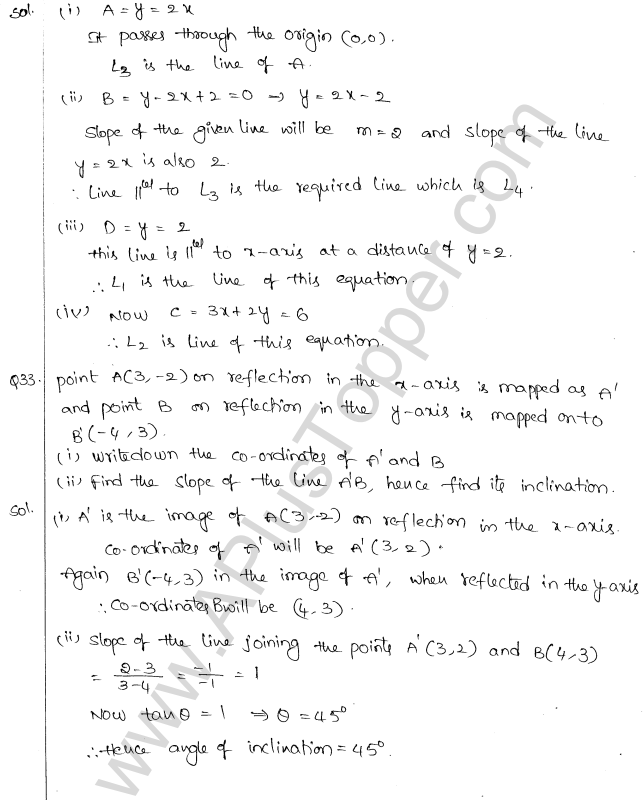 Sol. (i) A = y = 2x
It passes through the origin (0,0).
L3 is the line of A.
(ii) B = y - 2x + 2 = 0 → y = 2x - 2
Slope of the given line will be m = 2 and slope of the line
y = 2x is also 2.
∴ Line ||el to L3 is the required line which is L4.
(iii) D = y = 2
this line is ||el to x-axis at a distance of y = 2.
∴ L1 is the line of this equation.
(iv) Now C = 3x + 2y = 6
∴ L2 is line of this equation.
Q33. point A(3,-2) on reflection in the x-axis is mapped as A'
and point B on reflection in the y-axis is mapped onto
B'(-4,3).
(i) write down the co-ordinates of A' and B
(ii) Find the slope of the line A'B, hence find its inclination.
Sol. (i) A' is the image of A(3,-2) on reflection in the x-axis.
Co-ordinates of A' will be A'(3,2).
Again B'(-4,3) in the image of A', when reflected in the y axis
∴ Co-ordinates B will be (4,3).
(ii) slope of the line joining the points A'(3,2) and B(4,3)
= 2-3/3-4 = -1/-1 = 1
Now tan θ = 1 ⇒ θ = 45°
∴ Hence angle of inclination = 45°.
www.APlusTopper.com